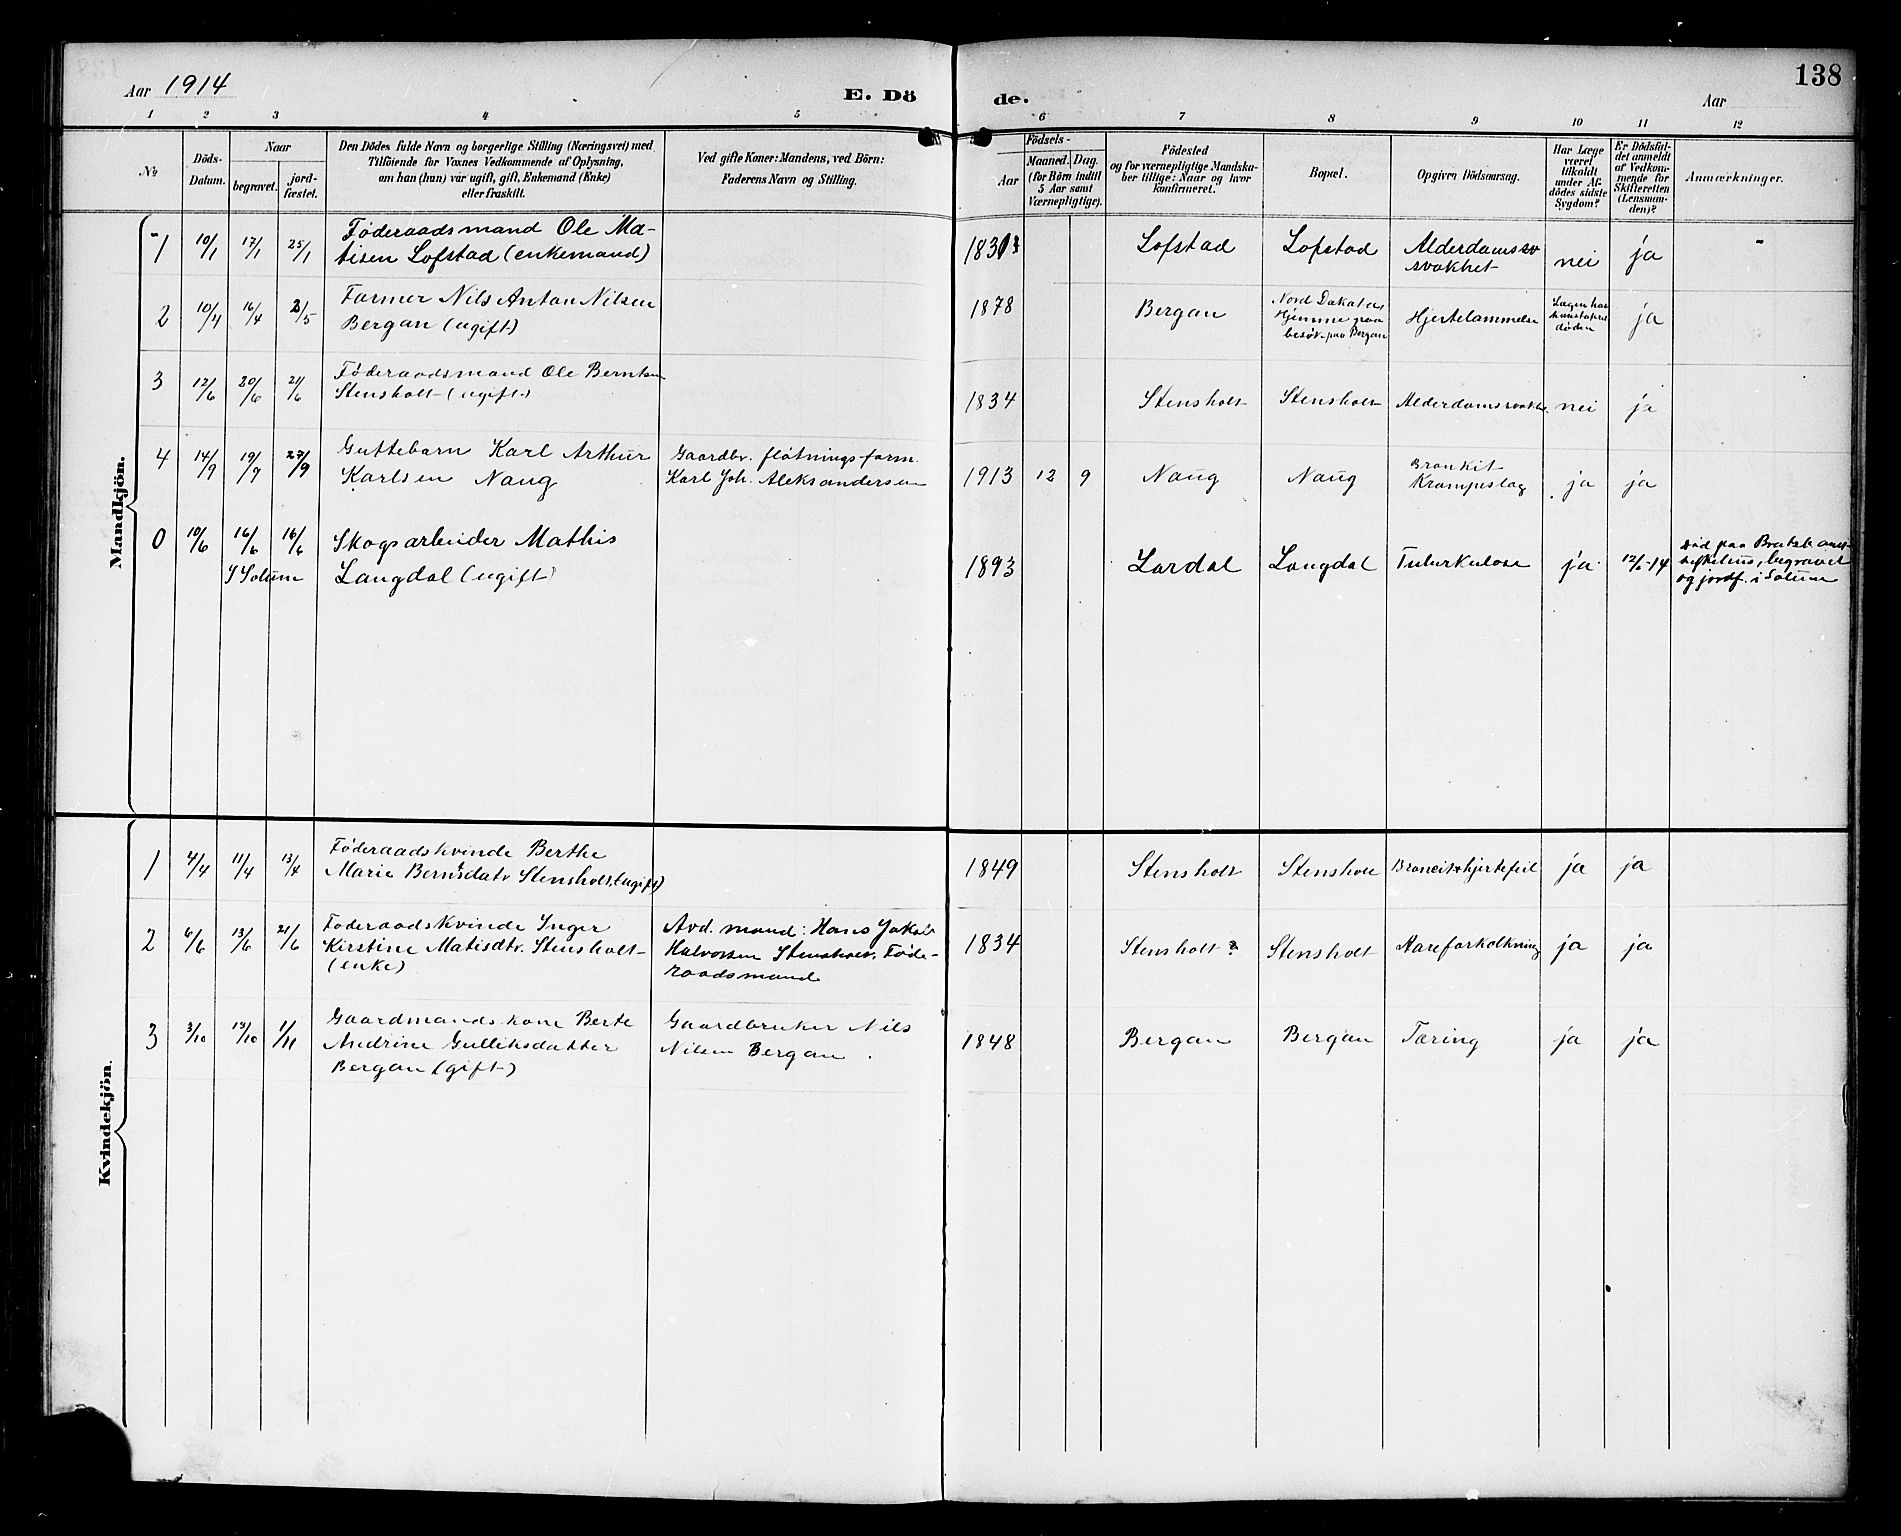 Aar 1914
E. Döde.
Aar
138
1 2 3 4 5 6 7 8 9 10 11 12
№
Döds-Datum.
Naar
begravet.
jord-
fæstet.
Den Dödes fulde Navn og borgerlige Stilling (Næringsvei) med
Tilföiende for Voxnes Vedkommende af Oplysning,
om han (hun) vár ugift, gift, Enkemand (Enke)
eller fraskilt.
Ved gifte Koner: Mandens, ved Börn:
Faderens Navn og Stilling.
Födsels-
Aar
Maaned. Dag.
(for Börn indtil
5 Aar samt
Værnepligtige).
Födested
og for værnepligtige Mandska-
ber tillige: Naar og hvor
konfirmeret.
Bopæl.
Opgiven Dödsaarsag.
Har Læge
været
tilkaldt
under Af-
dödes sidste
Sygdom?
Er Dödsfal-
det anmeldt
af Vedkom-
mende for
Skifteretten
(Lensman-
den)?
Anmærkninger.
Mandkjön.
1 10/1 17/1 25/1 Föderaadsmand Ole Ma-
tisen Lofstad (enkemand)
183 Lofstad Lofstad Alderdomssv
svakhet nei ja
2 10/4 16/4 3/5 Farmer Nils Anton Nilsen
Bergan (ugift)
1878 Bergan Nord Dakota
Hjemme paa
besök paa Bergan
Hjertelammelse
Lægen har
konstateret
döden
ja
3 12/6 20/6 21/6 Föderaadsmand Ole Berntsen
Stensholt (ugift)
1834 Stensholt Stensholt Alderdomssvakh. nei ja
4 14/9 19/9 27/9 Guttebarn Karl Arthur
Karlsen Naug
Gaardbr. flötningsform.
Karl Joh. Aleksandersen
1913 12 9 Naug Naug Bronkit
Krampeslag ja ja
0 10/6 16/6 16/6 Skogsarbeider Mathis
I Solum Langdal (ugift)
1893 Lardal Langdal Tuberkulose ja 12/6-14
Död paa Bratsb. amts
sykehus, begravet
og jordf. i Solum
Kvindekjön.
1 4/4 11/4 13/4 Föderaadskvinde Berthe
Marie Berntsdatr Stensholt (ugift)
1849 Stensholt Stensholt Broncit hjertefeil ja ja
2 6/6 13/6 21/6 Föderaadskvinde Inger
Kirstine Matisdtr. Stensholt
(enke)
Avd. mand: Hans Jakob
Halvorsen Stensholt, Föde-
raadsmand
1834 Stensholt? Stensholt Aareforkalkning ja ja
3 3/10 13/10 1/11 Gaardmandskone Berte
Andrine Gulliksdatter
Bergan (gift)
Gaardbruker Nils
Nilsen Bergan.
1848 Bergan Bergan Tæring ja ja